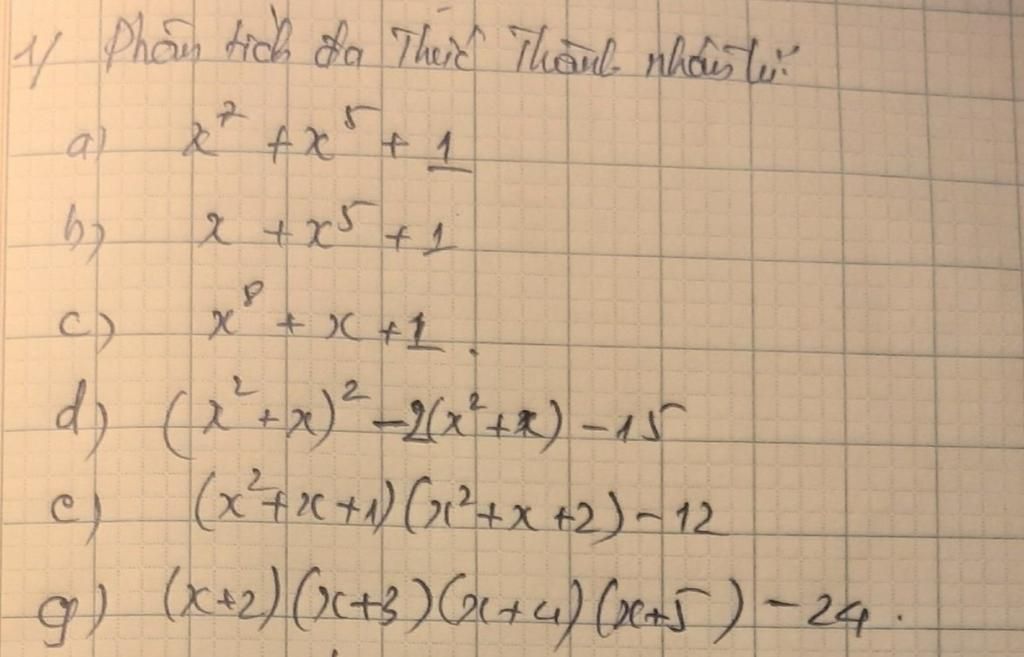 1/ Phân tích đa Thức Thành nhân tử:
a) x⁷ + x⁵ + 1
b) x + x⁵ + 1
c) x⁸ + x + 1.
d) (x² + x)² - 2(x² + x) - 15
e) (x² + x + 1)(x² + x + 2) - 12
g) (x+2)(x+3)(x+4)(x+5) - 24.